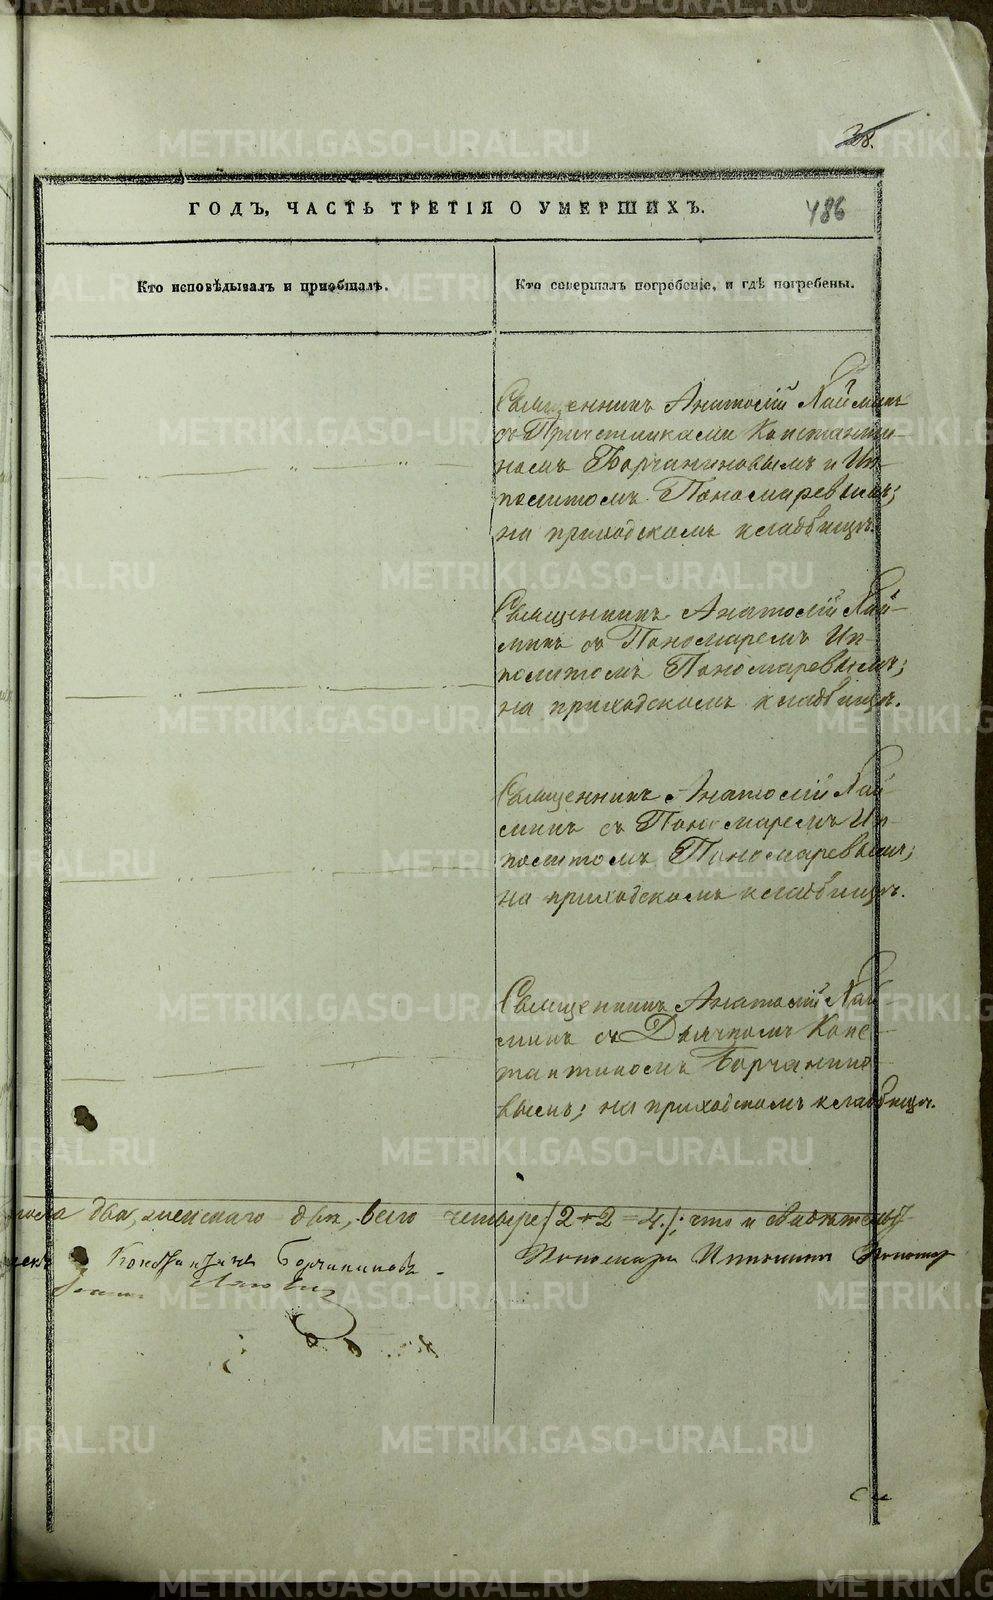 38.
486
ГОДЪ, ЧАСТЬ ТРЕТІЯ О УМЕРШИХЪ.
Кто исповѣдывалъ и пріобщалъ.
Кто совершалъ погребеніе, и гдѣ погребены.
Священникъ Анатолій Хай
съ Причетниками Константи-
номъ Борчаниновымъ и Ип-
политомъ Пономаревымъ;
на приходскомъ кладбищѣ.
Священникъ Анатолій Хай-
минъ съ Пономаремъ Ип-
политомъ Пономаревымъ;
на приходскомъ кладбищѣ.
Священникъ Анатолій Хай-
минъ съ Пономаремъ Ип-
политомъ Пономаревымъ;
на приходскомъ кладбищѣ.
Священникъ Анатолій Хай-
минъ съ Дьячкомъ Конс-
тантиномъ Борчанино-
вымъ; на приходскомъ кладбищѣ.
пола два, женскаго два, всего четыре /2+2=4./; что и
Константинъ Борчаниновъ
Пономарь Ипполитъ Пономар
METRIKI.GASO-URAL.RU